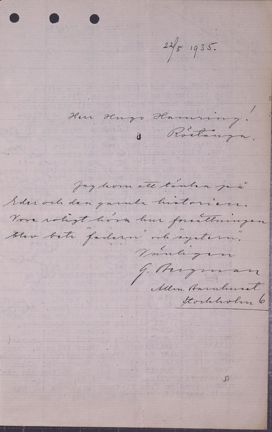 22/5 1935.
Herr Hugo Hamring!
Röstånga.
Jag kom att tänka på
Eder och den gamla historien.
Vore roligt höra hur fortsättningen
blev bets "fadern" och "systern".
Vänligen
G. Bergman
Allm. Barnhuset
Stockholm 6